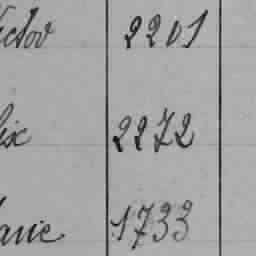 ictor 2201
lix 2272
arie 1733